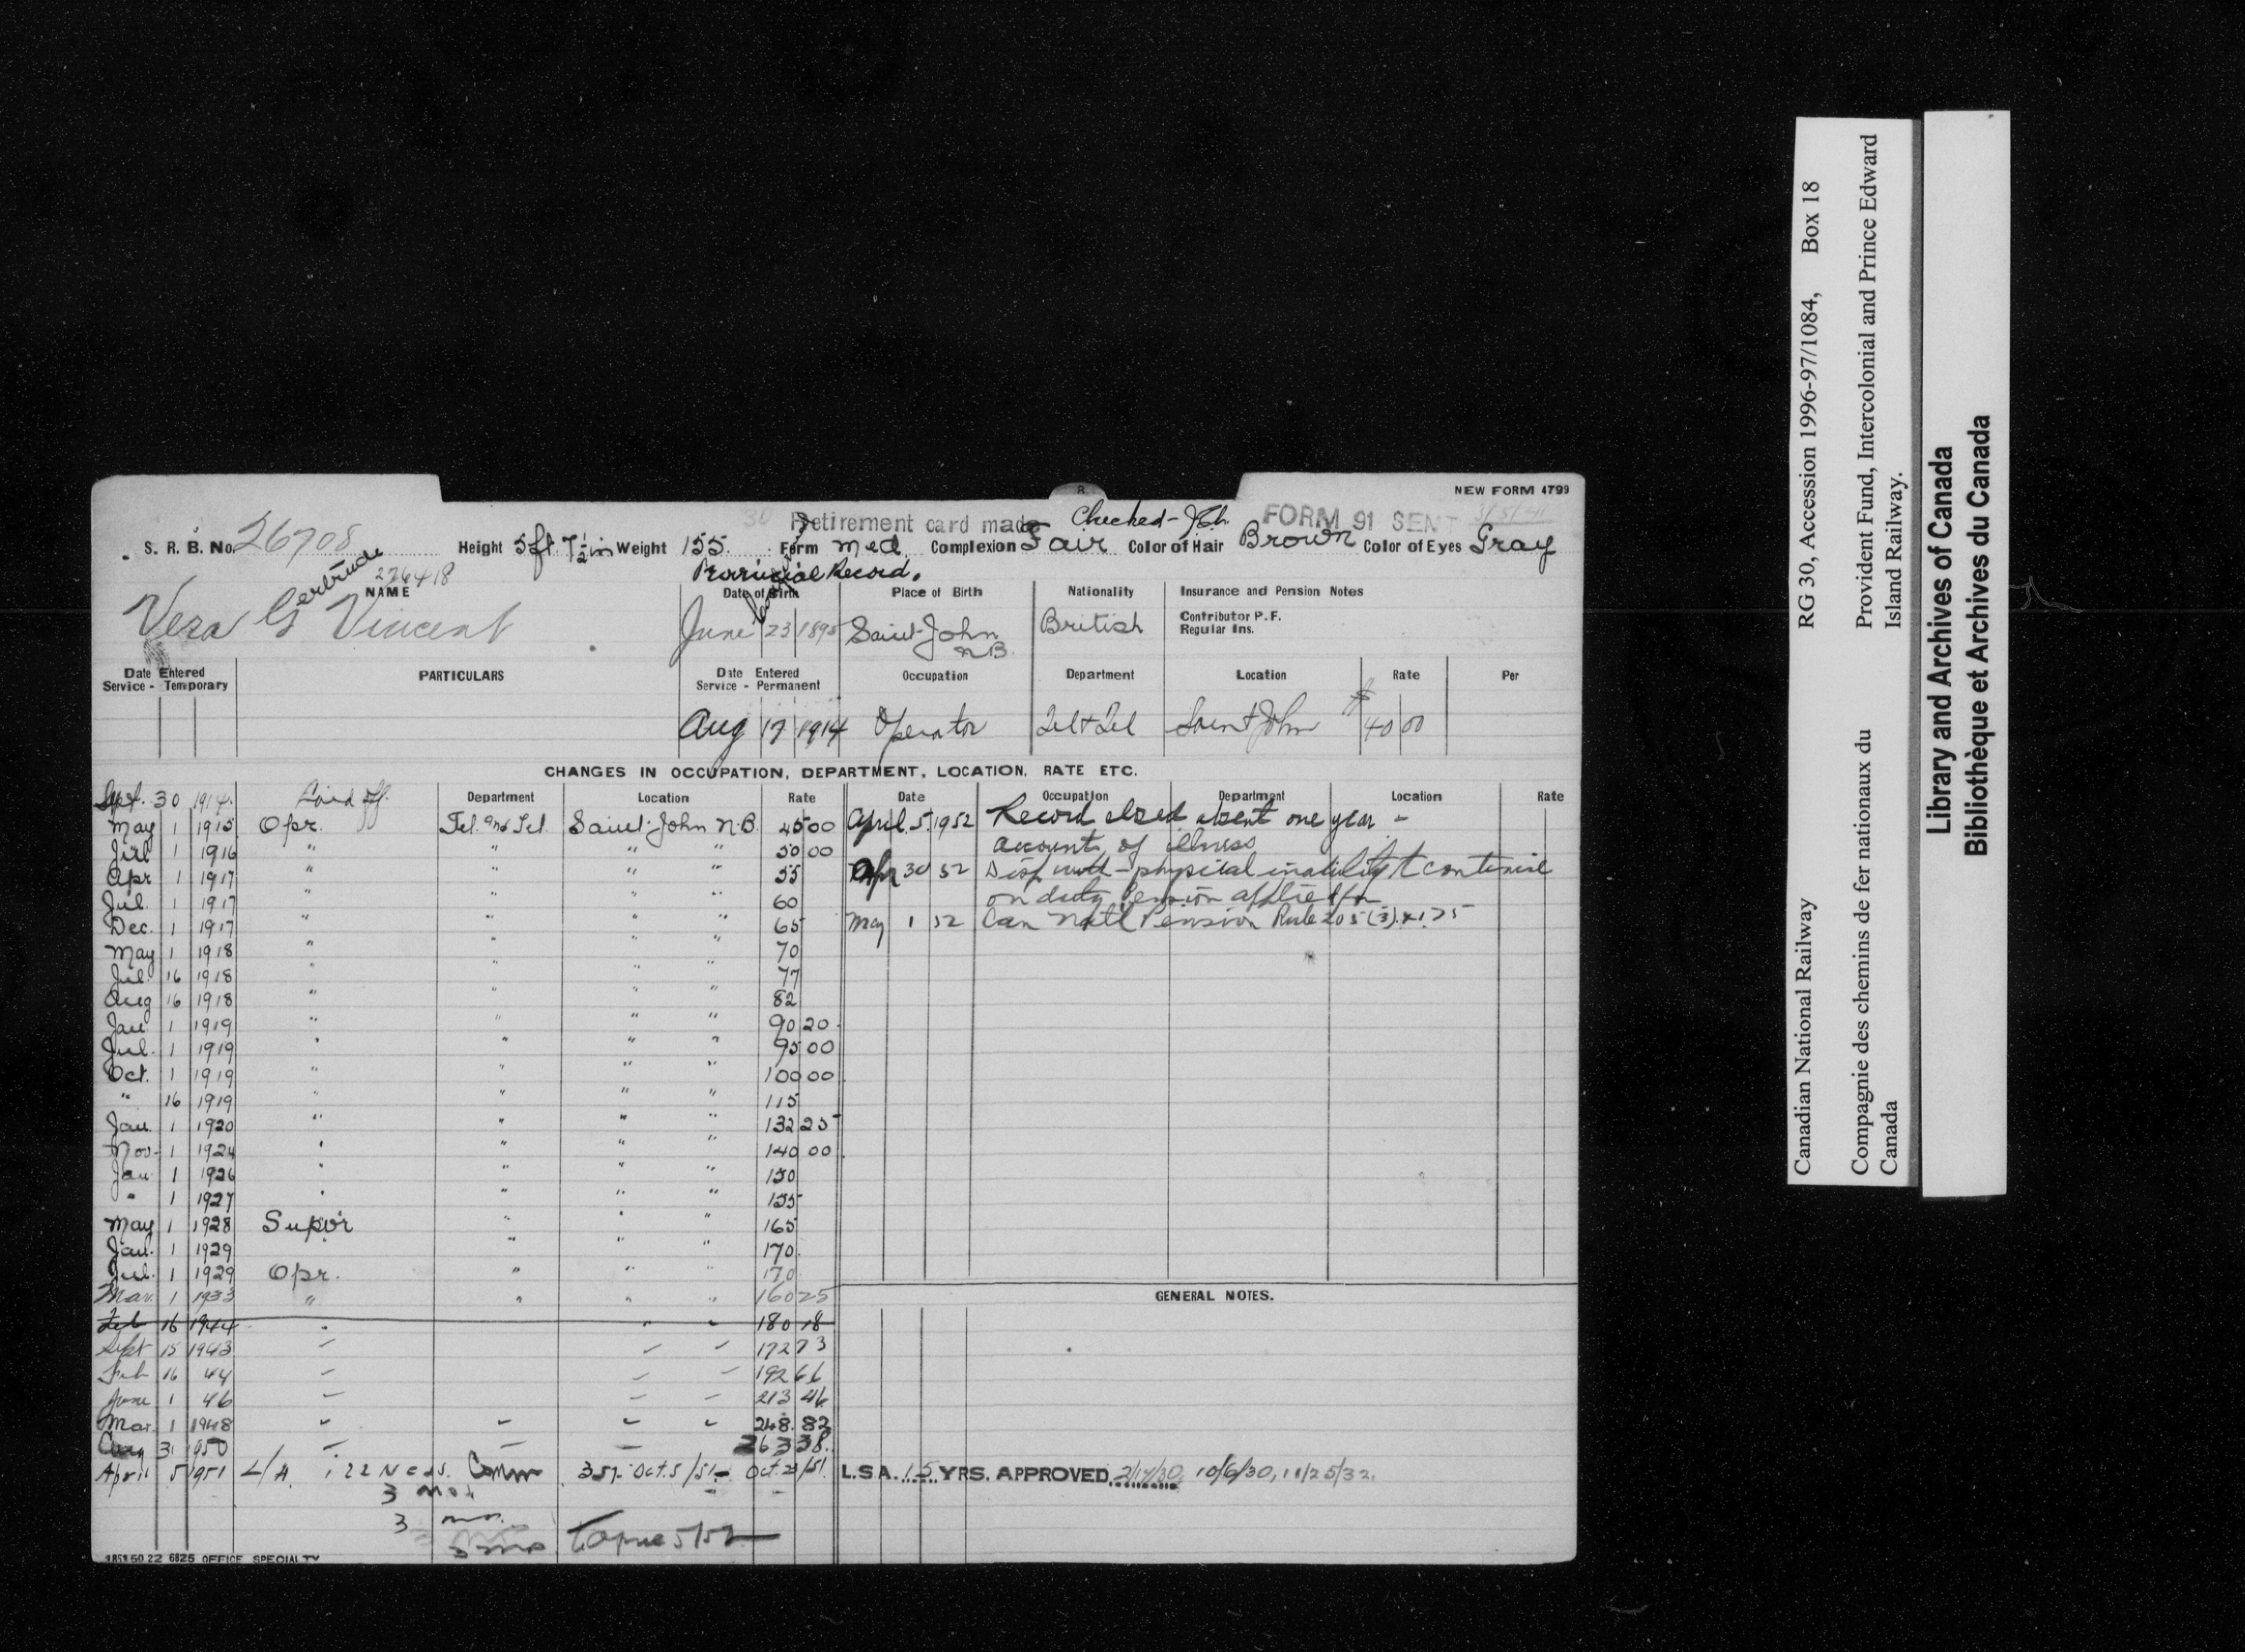 NEW FORM 4799
Retirement card made Checked - FORM 91 SENT
S. R. B. No. 26708 Height 5 ft 7 1/2 in Weight 155. Form med. Complexion Fair Color of Hair Brown Color of Eyes Gray
276418 Provincial Record.
NAME Date of Birth Place of Birth Nationality Insurance and Pension Notes
Vera G ertrude Vincent June 23 1895 Saint John N.B. British Contributor P.F.
Regular Ins.
Date Entered Service - Temporary PARTICULARS Date Entered Service - Permanent Occupation Department Location Rate Per
Aug 17 1914 Operator Tel & Tel Saint John $ 40 00
CHANGES IN OCCUPATION, DEPARTMENT, LOCATION, RATE ETC.
Sept. 30 1914. Laid off. Department Location Rate
May 1 1915 Opr. Tel. and Tel. Saint John N.B. 45 00
Jul 1 1916 " " " " 50 00
Apr 1 1917 " " " " 55
Jul. 1 1917 " " " " 60
Dec. 1 1917 " " " " 65
May 1 1918 " " " " 70
Jul. 16 1918 " " " " 77
Aug 16 1918 " " " " 82
Jan 1 1919 " " " " 90 20
Jul. 1 1919 " " " " 95 00
Oct. 1 1919 " " " " 100 00
" 16 1919 " " " " 115
Jan. 1 1920 " " " " 132 25
Nov. 1 1924 " " " " 140 00
Jan. 1 1926 " " " " 150
" 1 1927 " " " " 155
May 1 1928 Supvr " " " 165
Jan. 1 1929 " " " 170
Jul. 1 1929 Opr. " " " 170
Mar. 1 1933 " " " " 160 25
Feb 16 1944 " " " 180 18
Sept 15 1943 " " " 172 73
Feb 16 44 " " " 192 66
June 1 46 " " " 213 46
Mar. 1 1948 " " " " 248. 82
Aug 31 1950 " " " 263 38.
April 5 1951 L/A. Comm Oct. 5/51
3 mos
3 mos.
1853 50 22 6825 OFFICE SPECIALTY
Date Occupation Department Location Rate
April 5 1952 Record closed absent one year -
account of illness
Apr 30 52 physical inability to continue
on duty Pension applied for
May 1 52 Can Nat'l Pension Rule 205 (3)
GENERAL NOTES.
L.S.A. 15 YRS. APPROVED 2/17/30, 10/6/30, 11/25/32.
Canadian National Railway RG 30, Accession 1996-97/1084, Box 18
Compagnie des chemins de fer nationaux du Canada
Provident Fund, Intercolonial and Prince Edward Island Railway.
Library and Archives of Canada
Bibliothèque et Archives du Canada